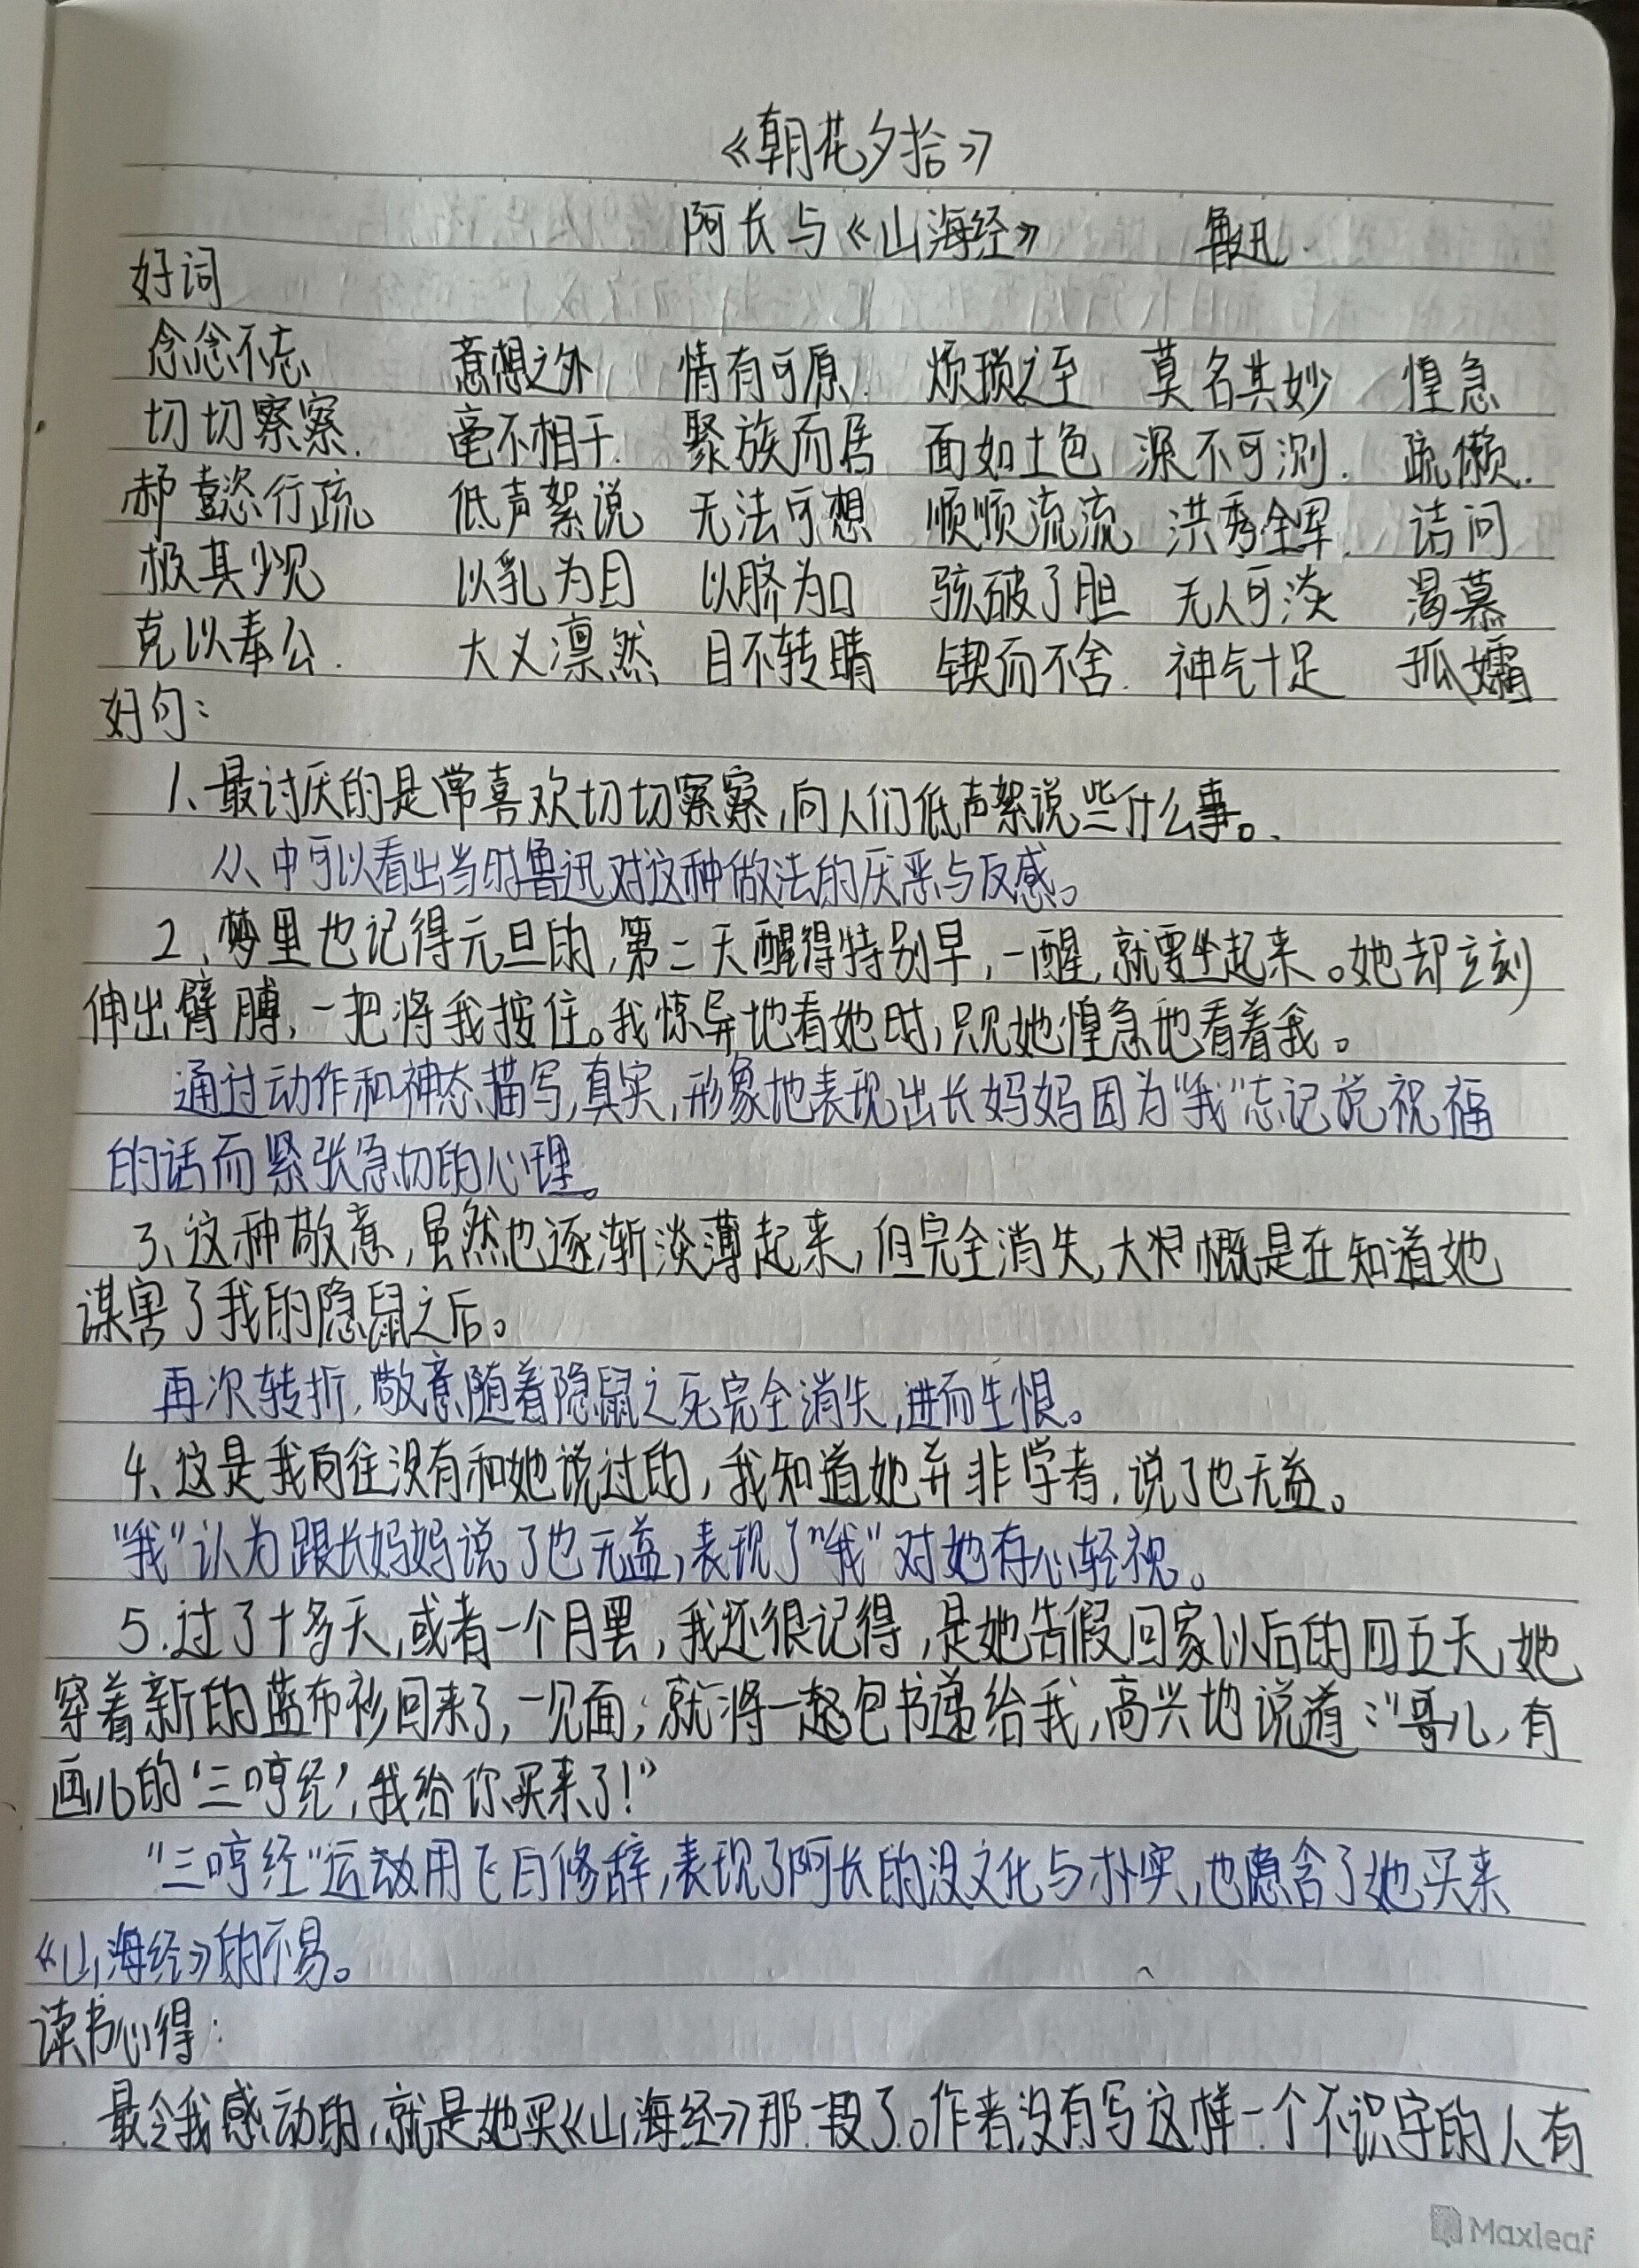 《朝花夕拾》
阿长与《山海经》 鲁迅
好词
念念不忘 意想之外 情有可原 烦琐之至 莫名其妙 惶急
切切察察 毫不相干 聚族而居 面如土色 深不可测 疏懒
郝懿行疏 低声絮说 无法可想 顺顺流流 洪秀全军 诘问
极其少见 以乳为目 以脐为口 骇破了胆 无人可淡 渴慕
克以奉公 大义凛然 目不转睛 锲而不舍 神气十足 孤孀
好句:
1、最讨厌的是常喜欢切切察察,向人们低声絮说些什么事。
从中可以看出当时鲁迅对这种做法的厌恶与反感。
2、梦里也记得元旦的,第二天醒得特别早,一醒,就要坐起来。她却立刻
伸出臂膊,一把将我按住。我惊异地看她时,只见她惶急地看着我。
通过动作和神态描写,真实,形象地表现出长妈妈因为“我”忘记说祝福
的话而紧张急切的心理。
3、这种敬意,虽然也逐渐淡薄起来,但完全消失,大概是在知道她
谋害了我的隐鼠之后。
再次转折,敬意随着隐鼠之死完全消失,进而生恨。
4、这是我向往没有和她说过的,我知道她并非学者,说了也无益。
“我”认为跟长妈妈说了也无益,表现了“我”对她存心轻视。
5.过了十多天,或者一个月罢,我还很记得,是她告假回家以后的四五天,她
穿着新的蓝布衫回来了,一见面,就将一起包书递给我,高兴地说道:“哥儿,有
画儿的‘三哼经’,我给你买来了!”
“三哼经”运用飞白修辞,表现了阿长的没文化与朴实,也隐含了她买来
《山海经》的不易。
读书心得:
最令我感动的,就是她买《山海经》那一段了。作者没有写这样一个不识字的人有
Maxleaf